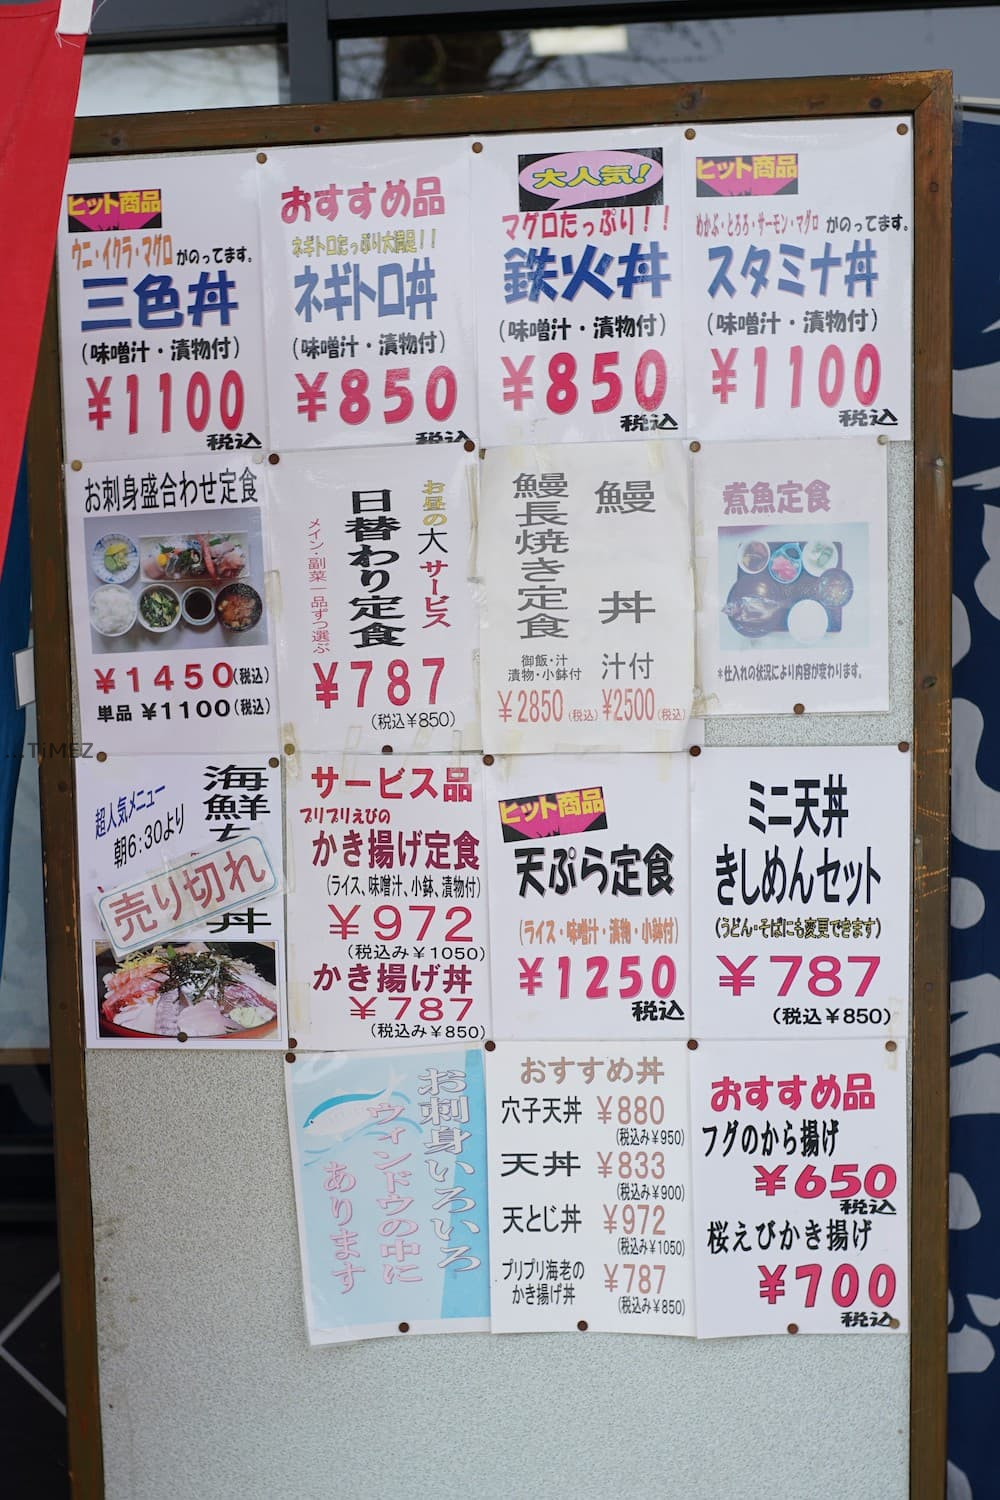 ヒット商品
ウニ・イクラ・マグロ かのってます。
三色丼
(味噌汁・漬物付)
¥1100
税込
おすすめ品
ネギトロたっぷり大満足!!
ネギトロ丼
(味噌汁・漬物付)
¥850
税込
大人気!
マグロたっぷり!!
鉄火丼
(味噌汁・漬物付)
¥850
税込
ヒット商品
めかぶ・とろろ・サーモン・マグロ かのってます。
スタミナ丼
(味噌汁・漬物付)
¥1100
税込
お刺身盛合わせ定食
¥1450(税込)
単品 ¥1100(税込)
お昼の大サービス
日替わり定食
メイン・副菜一品ずつ選ぶ
¥787
(税込¥850)
鰻丼
汁付
¥2500(税込)
鰻長焼き定食
御飯・汁
漬物・小鉢付
¥2850(税込)
煮魚定食
*仕入れの状況により内容が変わります。
...TiMEZ
海鮮
丼
超人気メニュー
朝6:30より
売り切れ
サービス品
プリプリえびの
かき揚げ定食
(ライス、味噌汁、小鉢、漬物付)
¥972
(税込み¥1050)
かき揚げ丼
¥787
(税込み¥850)
ヒット商品
天ぷら定食
(ライス・味噌汁・漬物・小鉢付)
¥1250
税込
ミニ天丼
きしめんセット
(うどん・そばにも変更できます)
¥787
(税込¥850)
お刺身いろいろ
ウィンドウの中に
あります
おすすめ丼
穴子天丼 ¥880
(税込み¥950)
天丼 ¥833
(税込み¥900)
天とじ丼 ¥972
(税込み¥1050)
プリプリ海老の
かき揚げ丼 ¥787
(税込み¥850)
おすすめ品
フグのから揚げ
¥650
税込
桜えびかき揚げ
¥700
税込